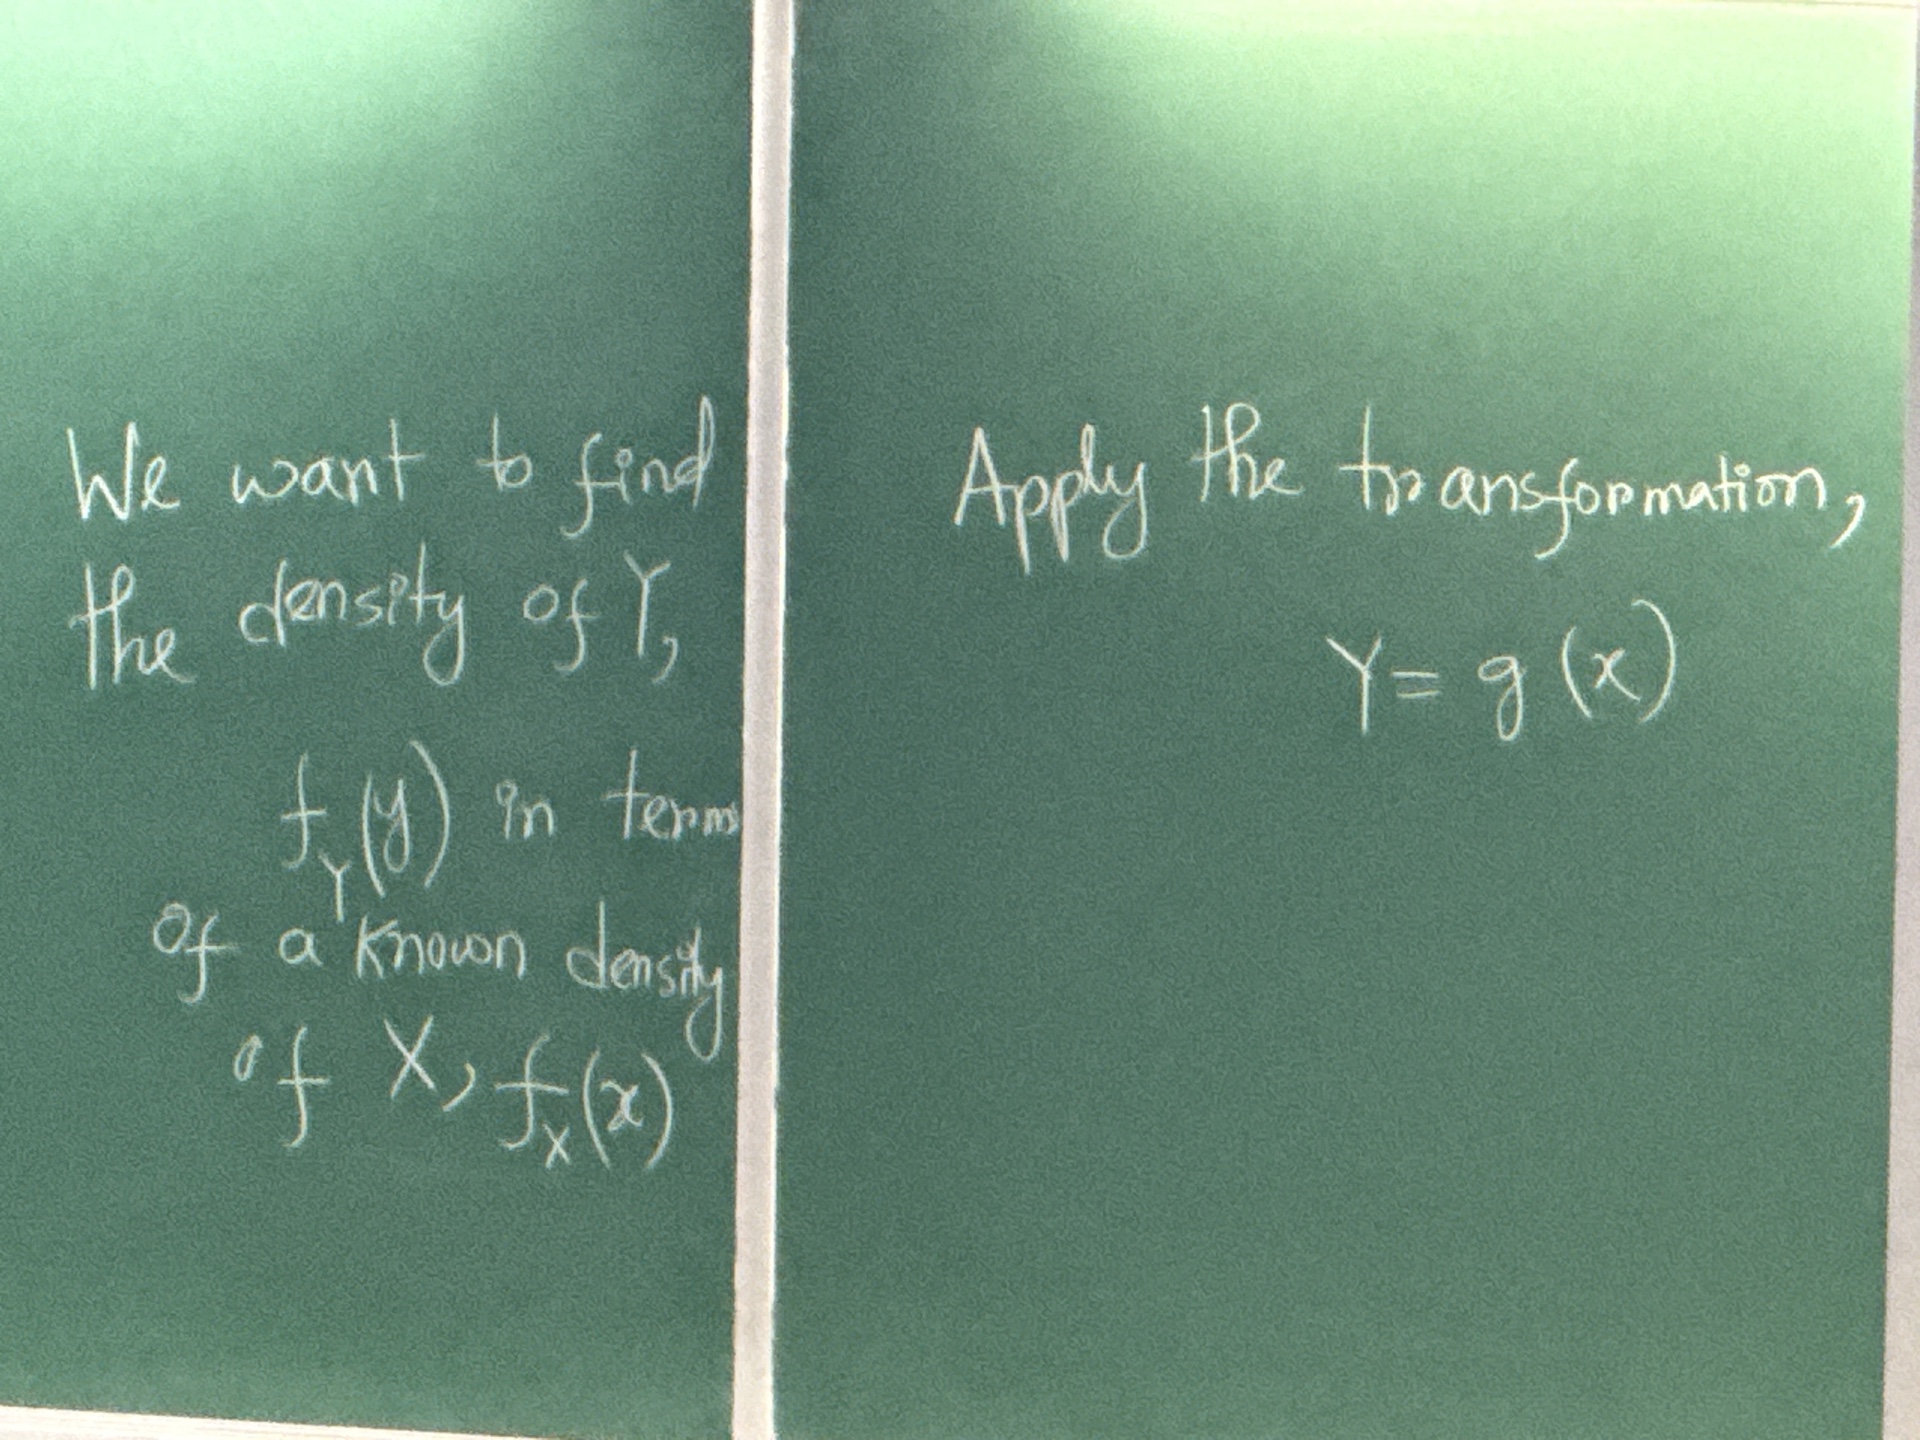 We want to find
the density of Y,
f_Y(y) in terms
of a known density
of X, f_X(x)
Apply the transformation,
Y = g(x)